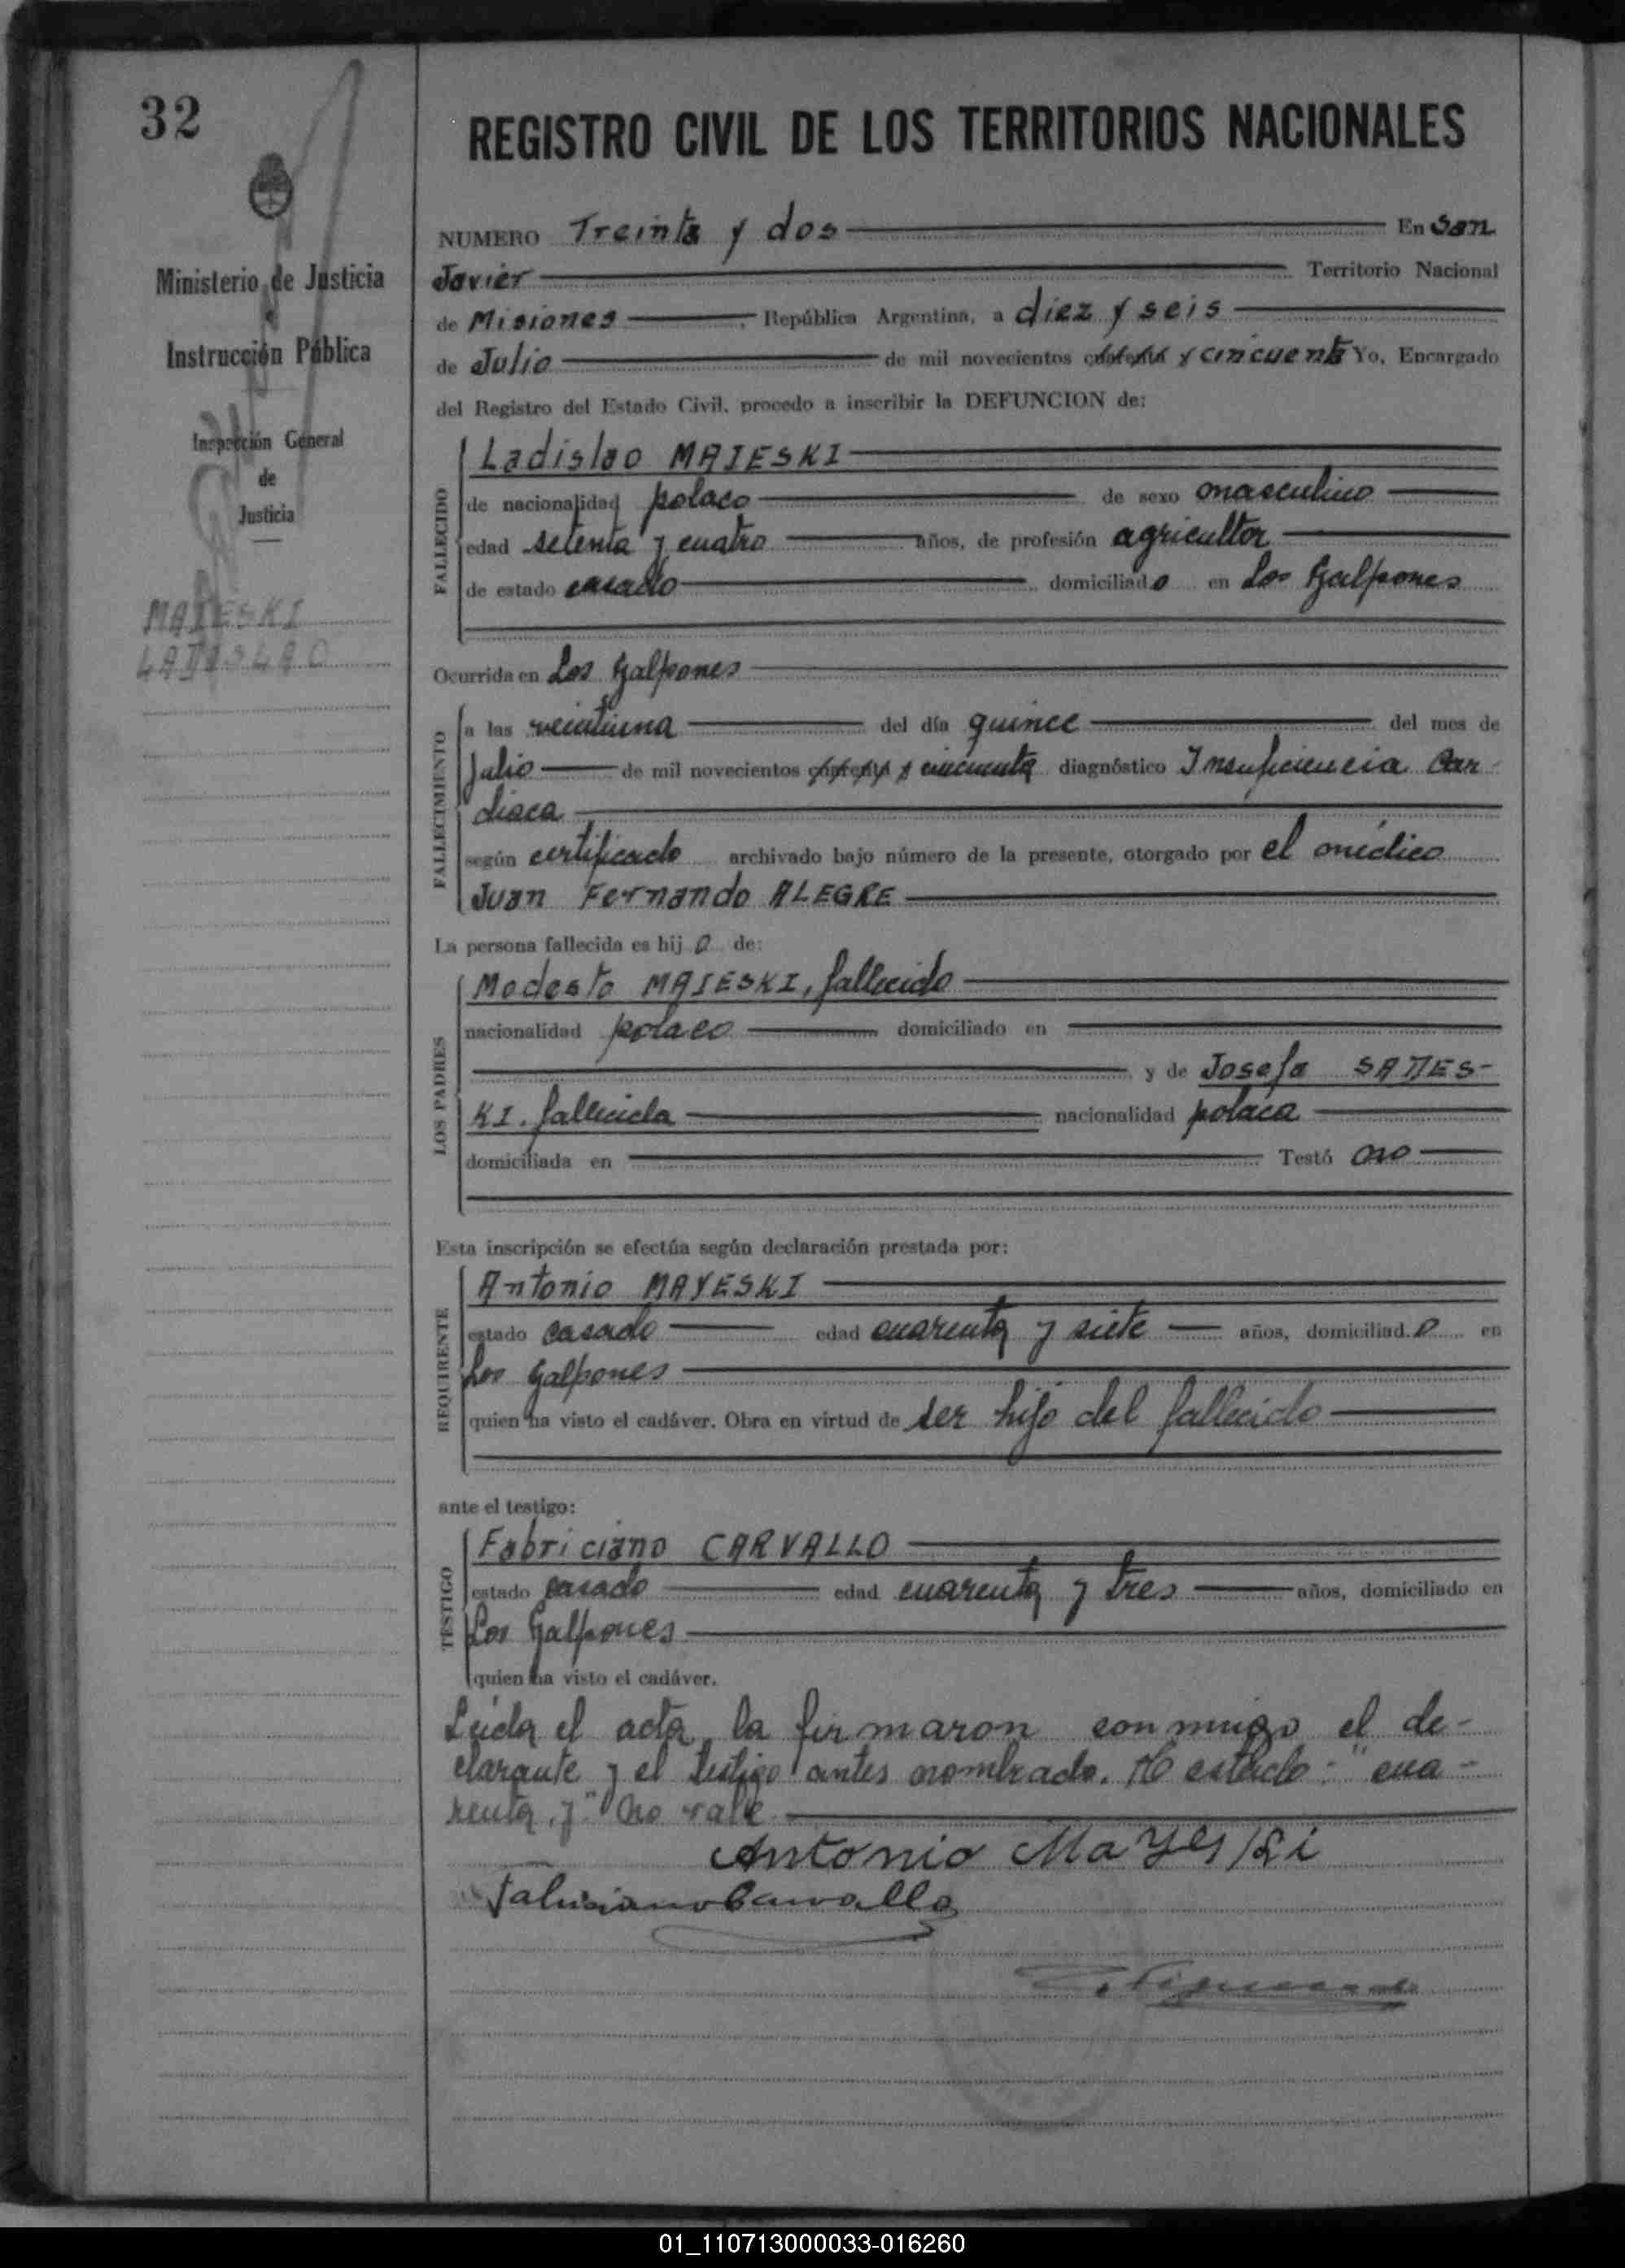 32
REGISTRO CIVIL DE LOS TERRITORIOS NACIONALES
Ministerio de Justicia
e
Instrucción Pública
Inspección General
de
Justicia
MAIESKI
LADISLAO
NUMERO Treinta y dos En San
Javier Territorio Nacional
de Misiones, República Argentina, a diez y seis
de Julio de mil novecientos cuarenta y cincuenta Yo, Encargado
del Registro del Estado Civil, procedo a inscribir la DEFUNCION de:
FALLECIDO
Ladislao MAIESKI
de nacionalidad polaco de sexo masculino
edad setenta y cuatro años, de profesión agricultor
de estado casado domiciliado en Los Galpones
Ocurrida en Los Galpones
FALLECIMIENTO
a las veintiuna del día quince del mes de
Julio de mil novecientos cuarenta y cincuenta diagnóstico Insuficiencia Car-
diaca
según certificado archivado bajo número de la presente, otorgado por el médico
Juan Fernando ALEGRE
La persona fallecida es hijo de:
LOS PADRES
Modesto MAIESKI, fallecido
nacionalidad polaco domiciliado en
y de Josefa
KI. fallecida nacionalidad polaca
domiciliada en Testó no
Esta inscripción se efectúa según declaración prestada por:
REQUIRENTE
Antonio MAYESKI
estado casado edad cuarenta y siete años, domiciliado en
Los Galpones
quien ha visto el cadáver. Obra en virtud de ser hijo del fallecido
ante el testigo:
TESTIGO
Fabriciano CARVALLO
estado casado edad cuarenta y tres años, domiciliado en
Los Galpones
quien ha visto el cadáver.
Leída el acta la firmaron conmigo el de-
clarante y el testigo antes nombrado. "cua-
renta y" No vale
Antonio Mayeski
Fabriciano Carvallo
01_110713000033-016260